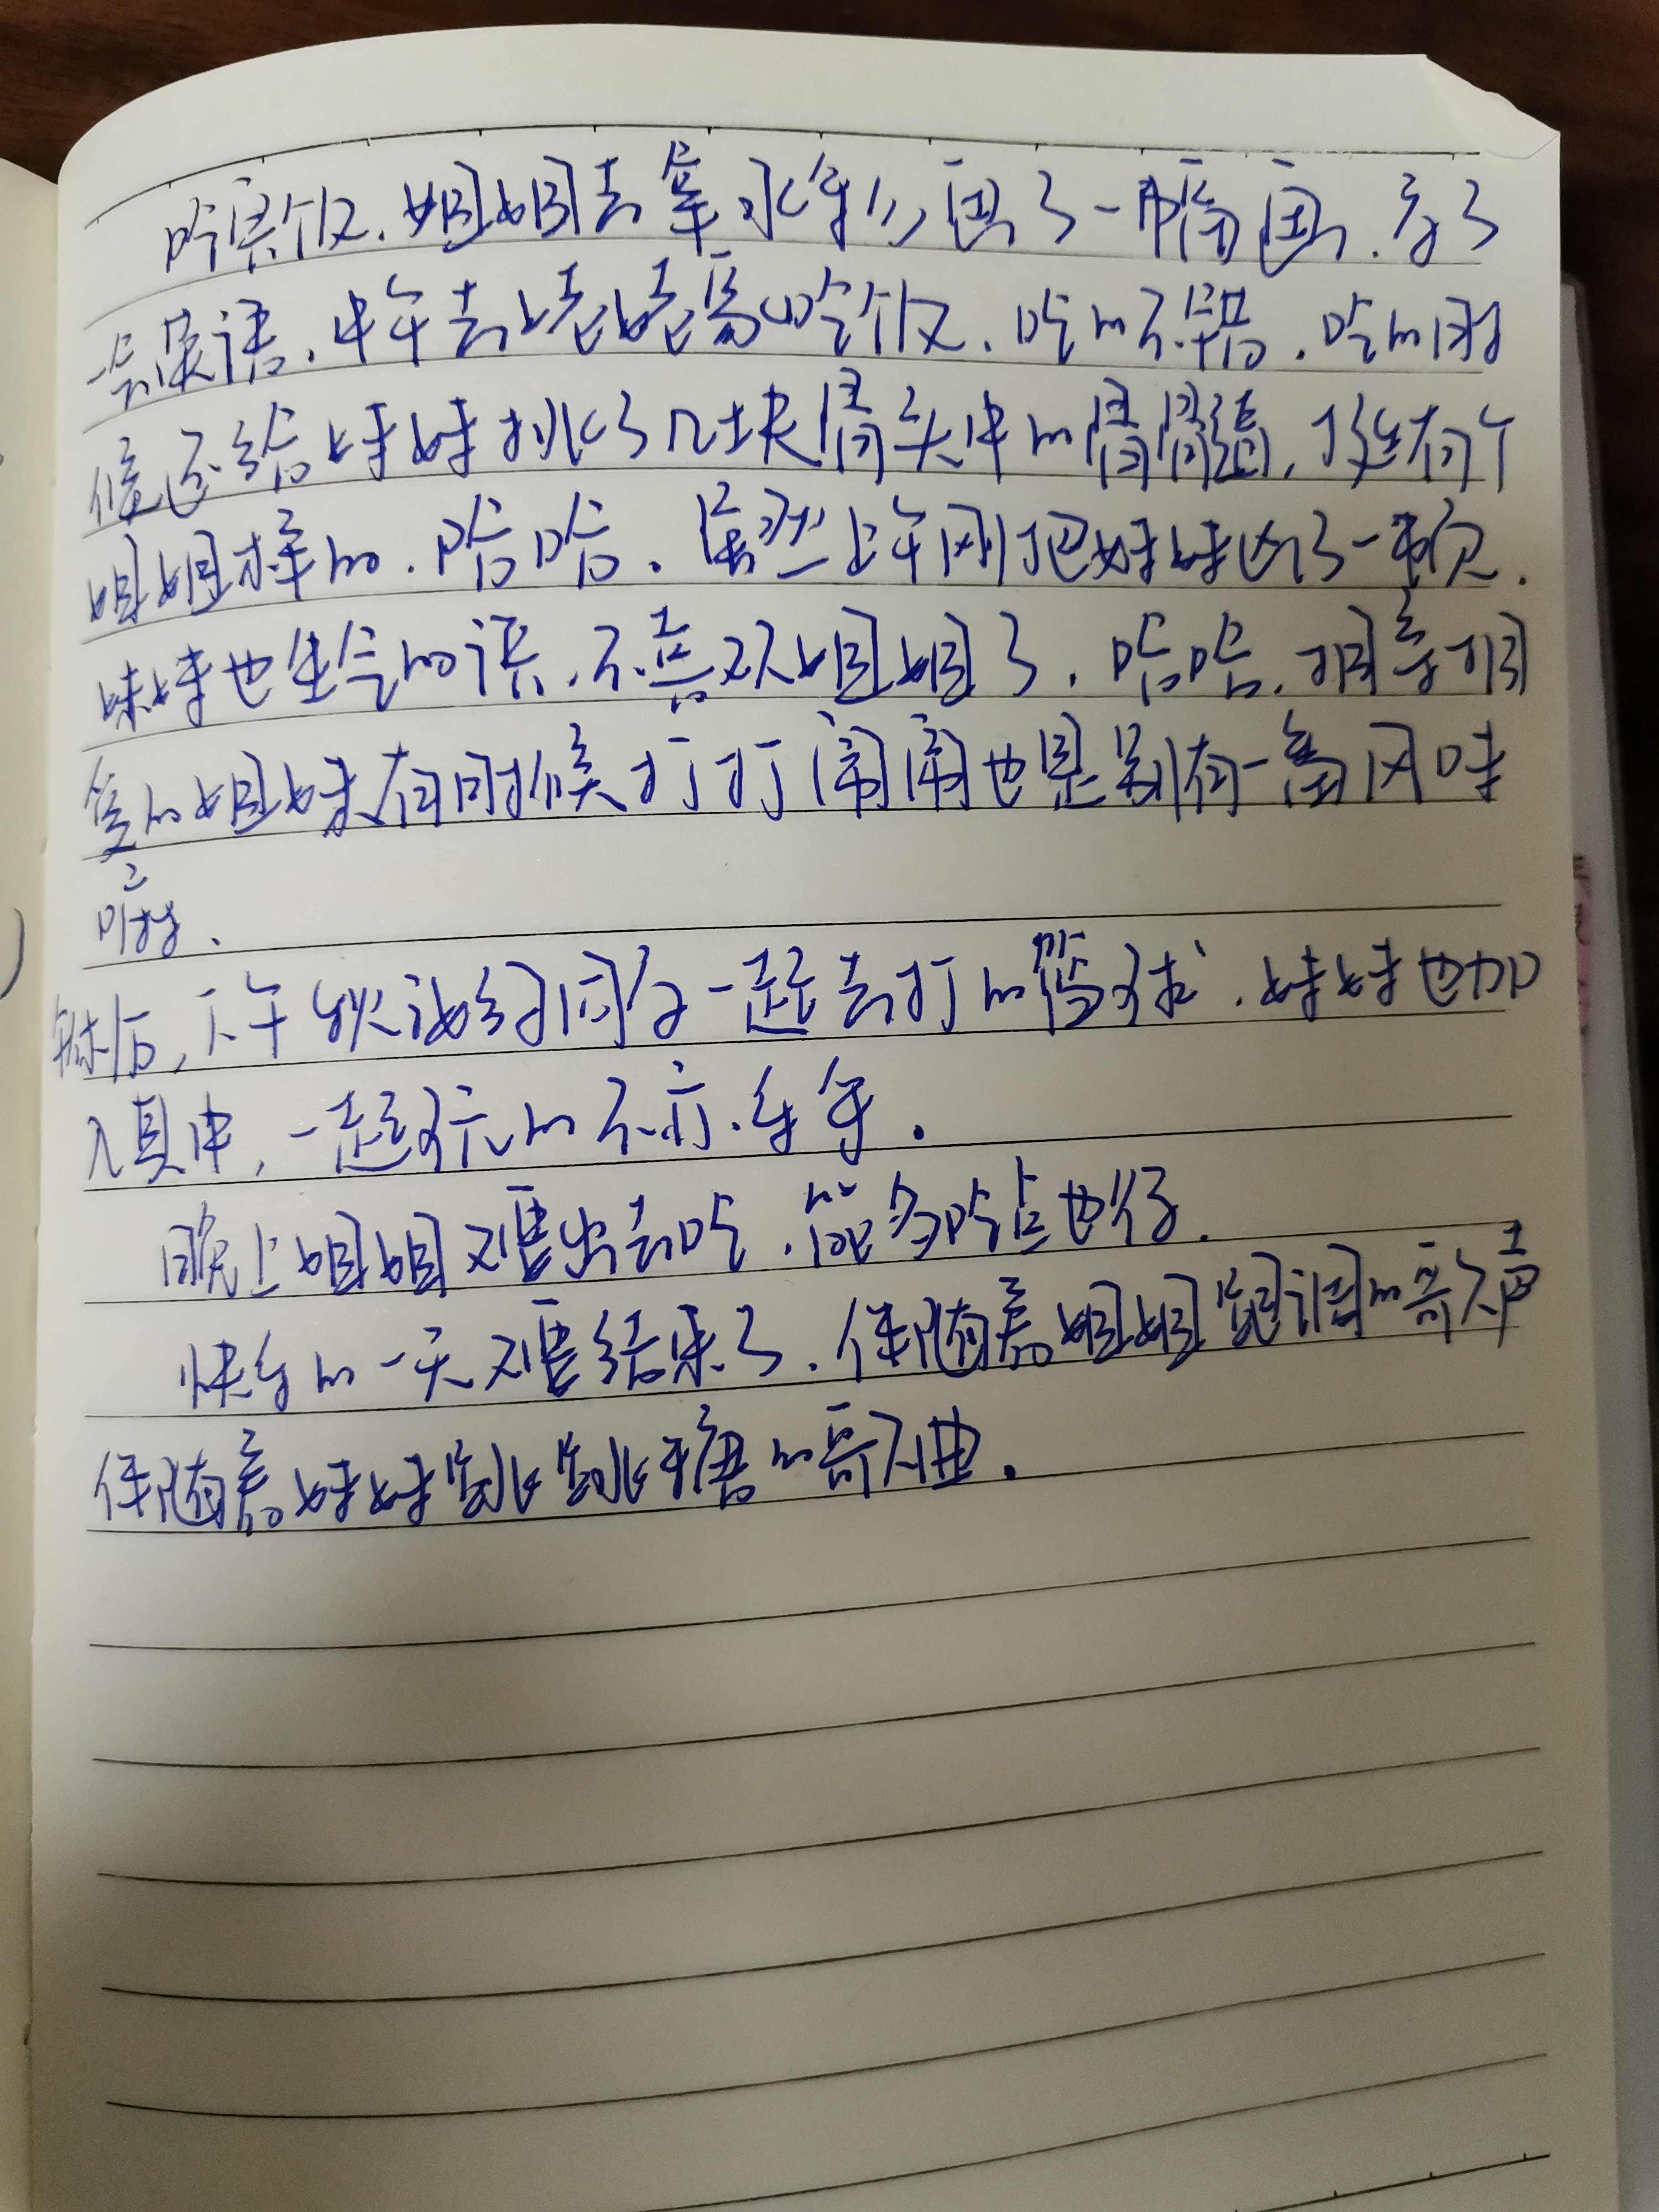 吃完饭，姐姐去拿水笔，画了一幅画，学了
一会英语，中午去姥姥家吃饭，吃的不错，吃的时
候还给妹妹挑了几块骨头中的骨髓，真有个
姐姐样的，哈哈，虽然上午刚把妹妹凶了一顿，
妹妹也生气的说，不喜欢姐姐了，哈哈，相亲相
爱的姐妹有时候打打闹闹也是别有一番风味
呀。
然后，下午又约同学一起去打的篮球，妹妹也加
入其中，一起玩的不亦乐乎。
晚上姐姐又要出去吃，能多吃点也行。
快乐的一天又要结束了，伴随着姐姐跑调的歌声
伴随着妹妹跳跳糖的歌曲。